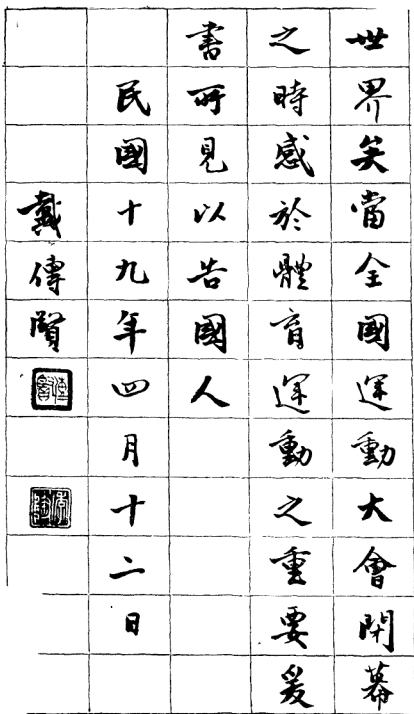 世界矣當全國運動大會開幕
之時感於體育運動之重要爰
書所見以告國人
民國十九年四月十二日
戴傳賢